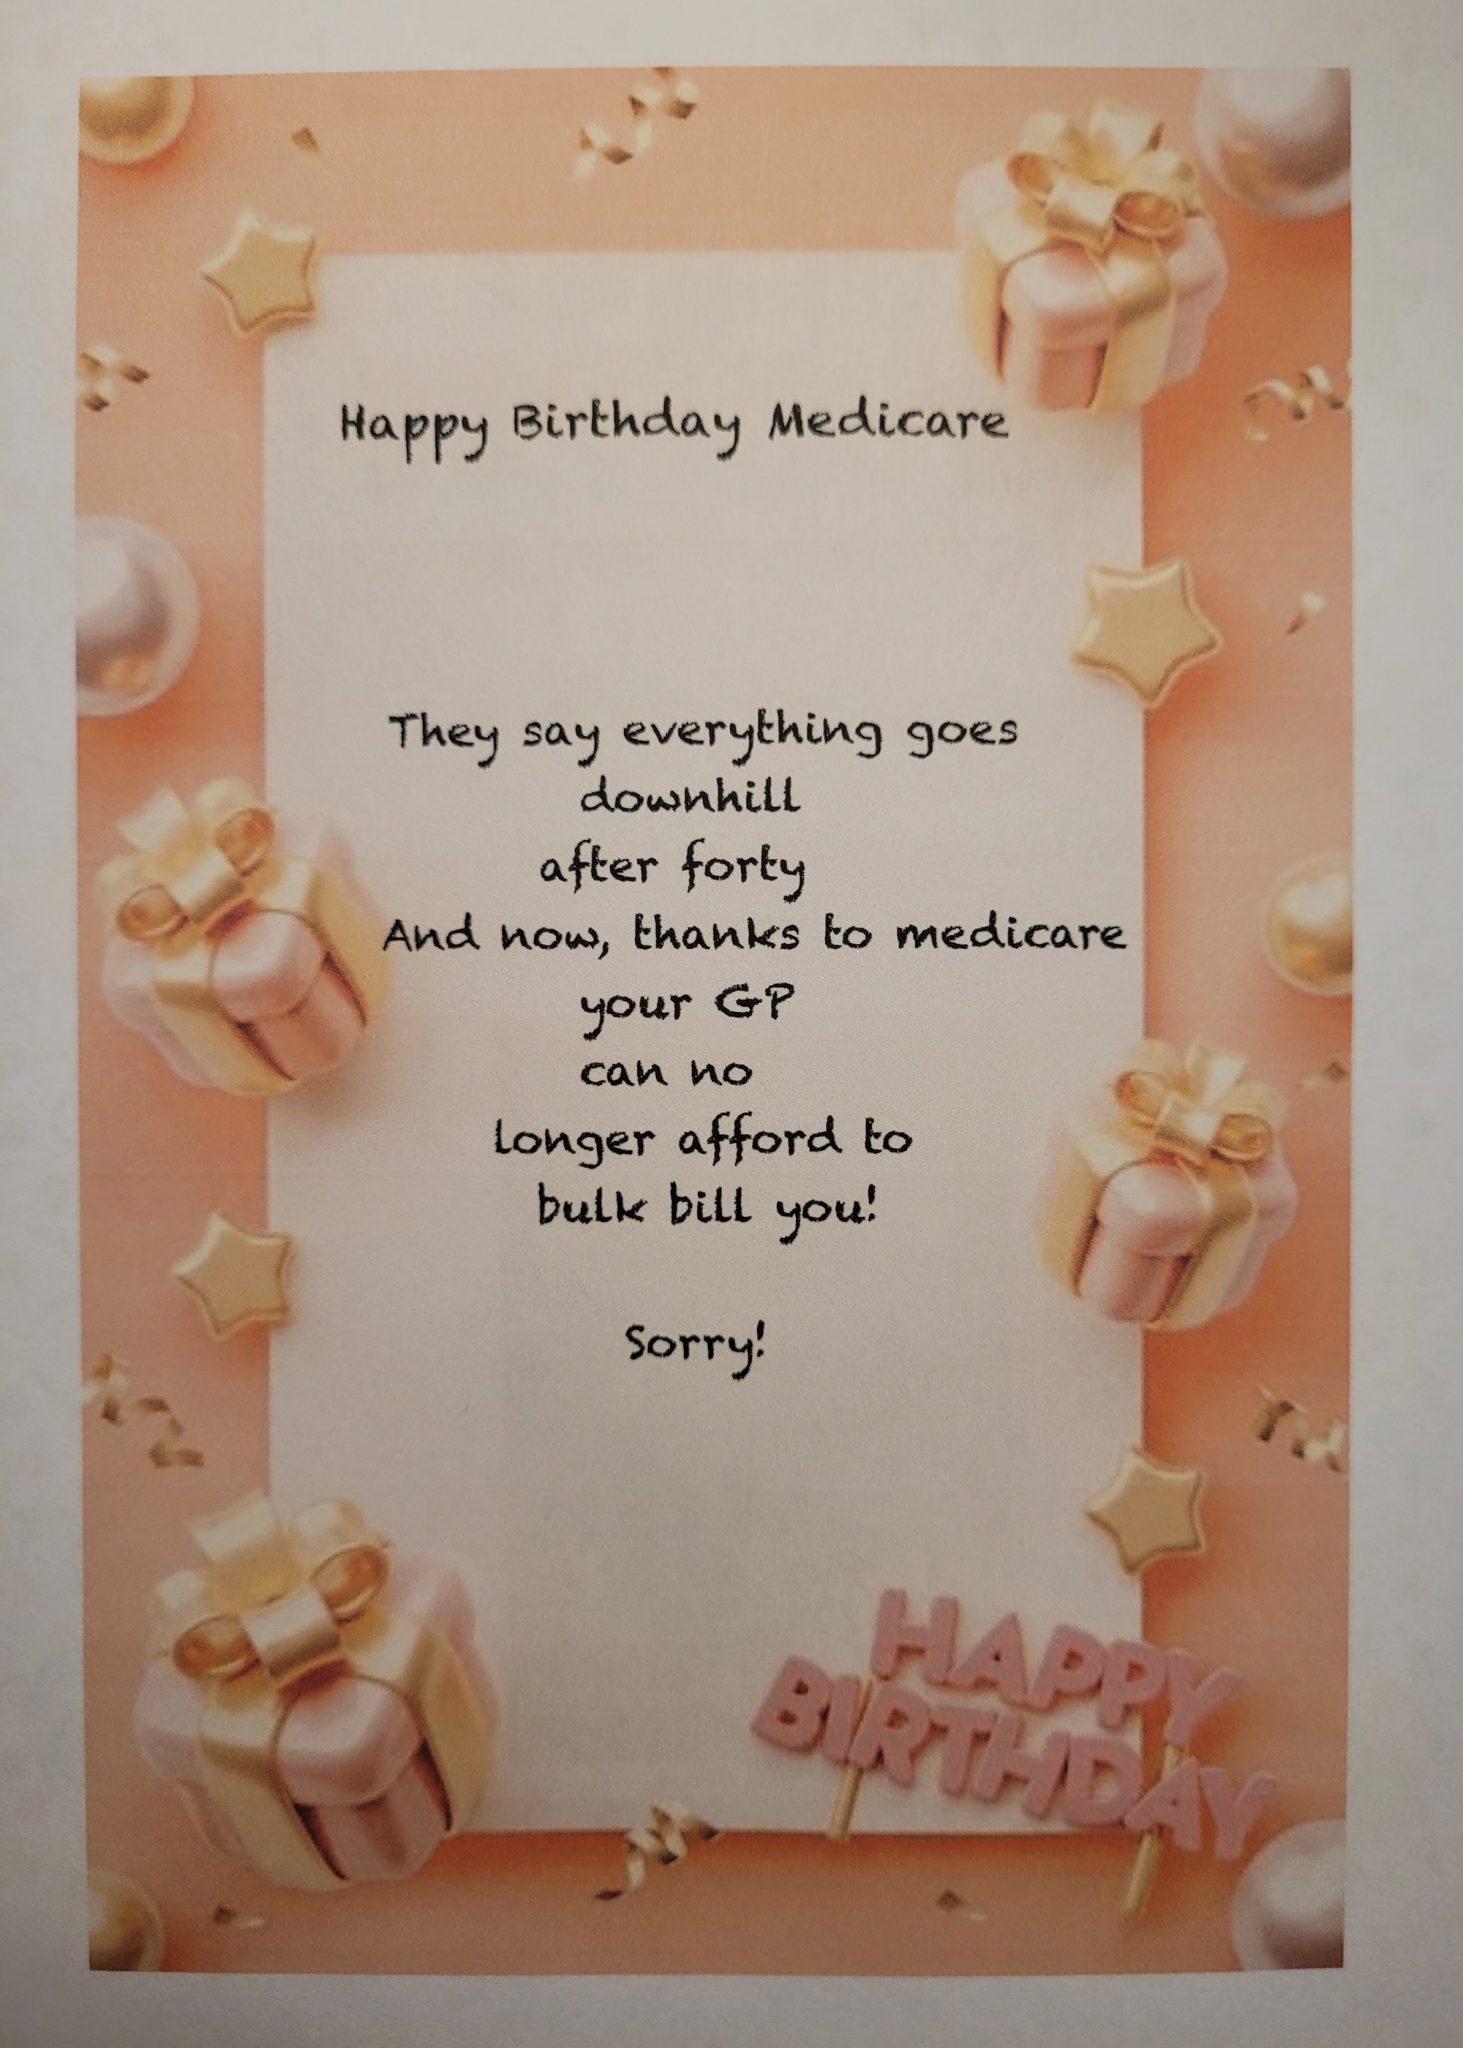 Happy Birthday Medicare
They say everything goes
downhill
after forty
And now, thanks to medicare
your GP
can no
longer afford to
bulk bill you!
Sorry!
HAPPY
BIRTHDAY